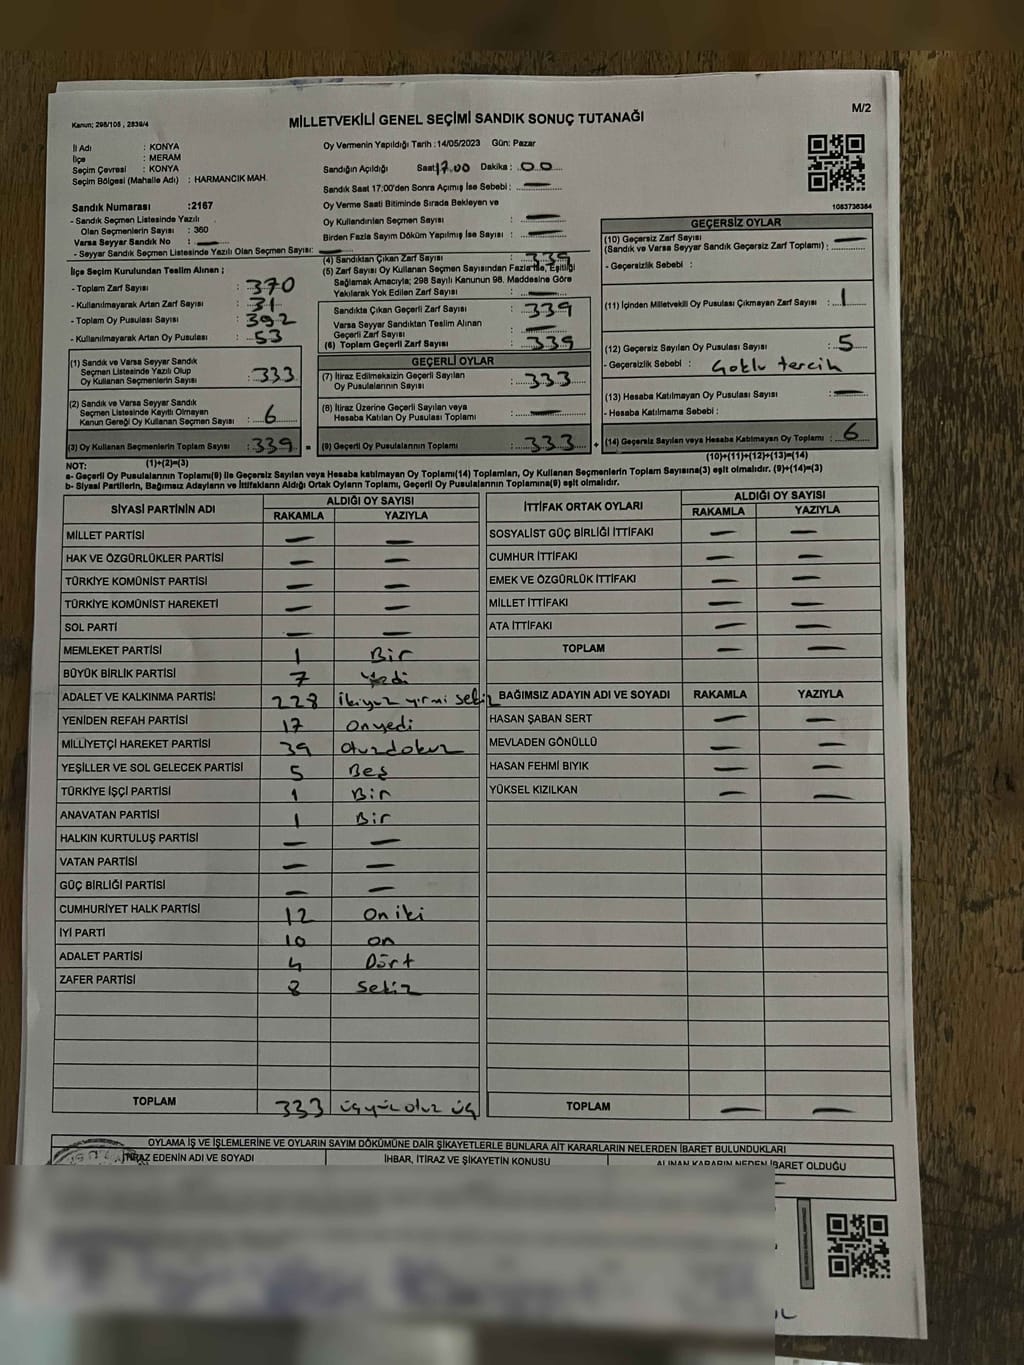 Kanun; 298/105 , 2839/4
MİLLETVEKİLİ GENEL SEÇİMİ SANDIK SONUÇ TUTANAĞI
M/2
İl Adı : KONYA
İlçe : MERAM
Seçim Çevresi : KONYA
Seçim Bölgesi (Mahalle Adı) : HARMANCIK MAH.
Oy Vermenin Yapıldığı Tarih :14/05/2023 Gün: Pazar
Sandığın Açıldığı Saat:17.00 Dakika: 00
Sandık Saat 17:00'den Sonra Açımış İse Sebebi : —
Sandık Numarası :2167
- Sandık Seçmen Listesinde Yazılı
Olan Seçmenlerin Sayısı : 360
Varsa Seyyar Sandık No : —
- Seyyar Sandık Seçmen Listesinde Yazılı Olan Seçmen Sayısı: —
Oy Verme Saati Bitiminde Sırada Bekleyen ve
Oy Kullandırılan Seçmen Sayısı : —
Birden Fazla Sayım Döküm Yapılmış İse Sayısı : —
1083736384
İlçe Seçim Kurulundan Teslim Alınan ;
- Toplam Zarf Sayısı : 370
- Kullanılmayarak Artan Zarf Sayısı : 31
- Toplam Oy Pusulası Sayısı : 392
- Kullanılmayarak Artan Oy Pusulası : 53
(1) Sandık ve Varsa Seyyar Sandık
Seçmen Listesinde Yazılı Olup
Oy Kullanan Seçmenlerin Sayısı : 333
(2) Sandık ve Varsa Seyyar Sandık
Seçmen Listesinde Kayıtlı Olmayan
Kanun Gereği Oy Kullanan Seçmen Sayısı : 6
(3) Oy Kullanan Seçmenlerin Toplam Sayısı : 339 =
(1)+(2)=(3)
(4) Sandıktan Çıkan Zarf Sayısı : 339
(5) Zarf Sayısı Oy Kullanan Seçmen Sayısından Fazla İse, Eşitliği
Sağlamak Amacıyla; 298 Sayılı Kanunun 98. Maddesine Göre
Yakılarak Yok Edilen Zarf Sayısı : —
Sandıkta Çıkan Geçerli Zarf Sayısı : 339
Varsa Seyyar Sandıktan Teslim Alınan
Geçerli Zarf Sayısı : —
(6) Toplam Geçerli Zarf Sayısı : 339
GEÇERLİ OYLAR
(7) İtiraz Edilmeksizin Geçerli Sayılan
Oy Pusulalarının Sayısı : 333
(8) İtiraz Üzerine Geçerli Sayılan veya
Hesaba Katılan Oy Pusulası Toplamı : —
(9) Geçerli Oy Pusulalarının Toplamı : 333 +
GEÇERSİZ OYLAR
(10) Geçersiz Zarf Sayısı
(Sandık ve Varsa Seyyar Sandık Geçersiz Zarf Toplamı) : —
- Geçersizlik Sebebi :
(11) İçinden Milletvekili Oy Pusulası Çıkmayan Zarf Sayısı : 1
(12) Geçersiz Sayılan Oy Pusulası Sayısı : 5
- Geçersizlik Sebebi : Çoklu tercih
(13) Hesaba Katılmayan Oy Pusulası Sayısı : —
- Hesaba Katılmama Sebebi :
(14) Geçersiz Sayılan veya Hesaba Katılmayan Oy Toplamı : 6
(10)+(11)+(12)+(13)=(14)
NOT:
a- Geçerli Oy Pusulalarının Toplamı(9) ile Geçersiz Sayılan veya Hesaba katılmayan Oy Toplamı(14) Toplamları, Oy Kullanan Seçmenlerin Toplam Sayısına(3) eşit olmalıdır. (9)+(14)=(3)
b- Siyasi Partilerin, Bağımsız Adayların ve İttifakların Aldığı Ortak Oyların Toplamı, Geçerli Oy Pusulalarının Toplamına(9) eşit olmalıdır.
SİYASİ PARTİNİN ADI ALDIĞI OY SAYISI
RAKAMLA YAZIYLA
MİLLET PARTİSİ — —
HAK VE ÖZGÜRLÜKLER PARTİSİ — —
TÜRKİYE KOMÜNİST PARTİSİ — —
TÜRKİYE KOMÜNİST HAREKETİ — —
SOL PARTİ — —
MEMLEKET PARTİSİ 1 Bir
BÜYÜK BİRLİK PARTİSİ 7 Yedi
ADALET VE KALKINMA PARTİSİ 228 ikiyüz yirmi sekiz
YENİDEN REFAH PARTİSİ 17 onyedi
MİLLİYETÇİ HAREKET PARTİSİ 39 otuzdokuz
YEŞİLLER VE SOL GELECEK PARTİSİ 5 Beş
TÜRKİYE İŞÇİ PARTİSİ 1 Bir
ANAVATAN PARTİSİ 1 Bir
HALKIN KURTULUŞ PARTİSİ — —
VATAN PARTİSİ — —
GÜÇ BİRLİĞİ PARTİSİ — —
CUMHURİYET HALK PARTİSİ 12 oniki
İYİ PARTİ 10 on
ADALET PARTİSİ 4 Dört
ZAFER PARTİSİ 8 sekiz
TOPLAM 333 üçyüz otuz üç
İTTİFAK ORTAK OYLARI ALDIĞI OY SAYISI
RAKAMLA YAZIYLA
SOSYALİST GÜÇ BİRLİĞİ İTTİFAKI — —
CUMHUR İTTİFAKI — —
EMEK VE ÖZGÜRLÜK İTTİFAKI — —
MİLLET İTTİFAKI — —
ATA İTTİFAKI — —
TOPLAM — —
BAĞIMSIZ ADAYIN ADI VE SOYADI RAKAMLA YAZIYLA
HASAN ŞABAN SERT — —
MEVLADEN GÖNÜLLÜ — —
HASAN FEHMİ BIYIK — —
YÜKSEL KIZILKAN — —
TOPLAM — —
OYLAMA İŞ VE İŞLEMLERİNE VE OYLARIN SAYIM DÖKÜMÜNE DAİR ŞİKAYETLERLE BUNLARA AİT KARARLARIN NELERDEN İBARET BULUNDUKLARI
İTİRAZ EDENİN ADI VE SOYADI İHBAR, İTİRAZ VE ŞİKAYETİN KONUSU ALINAN KARARIN NEDEN İBARET OLDUĞU